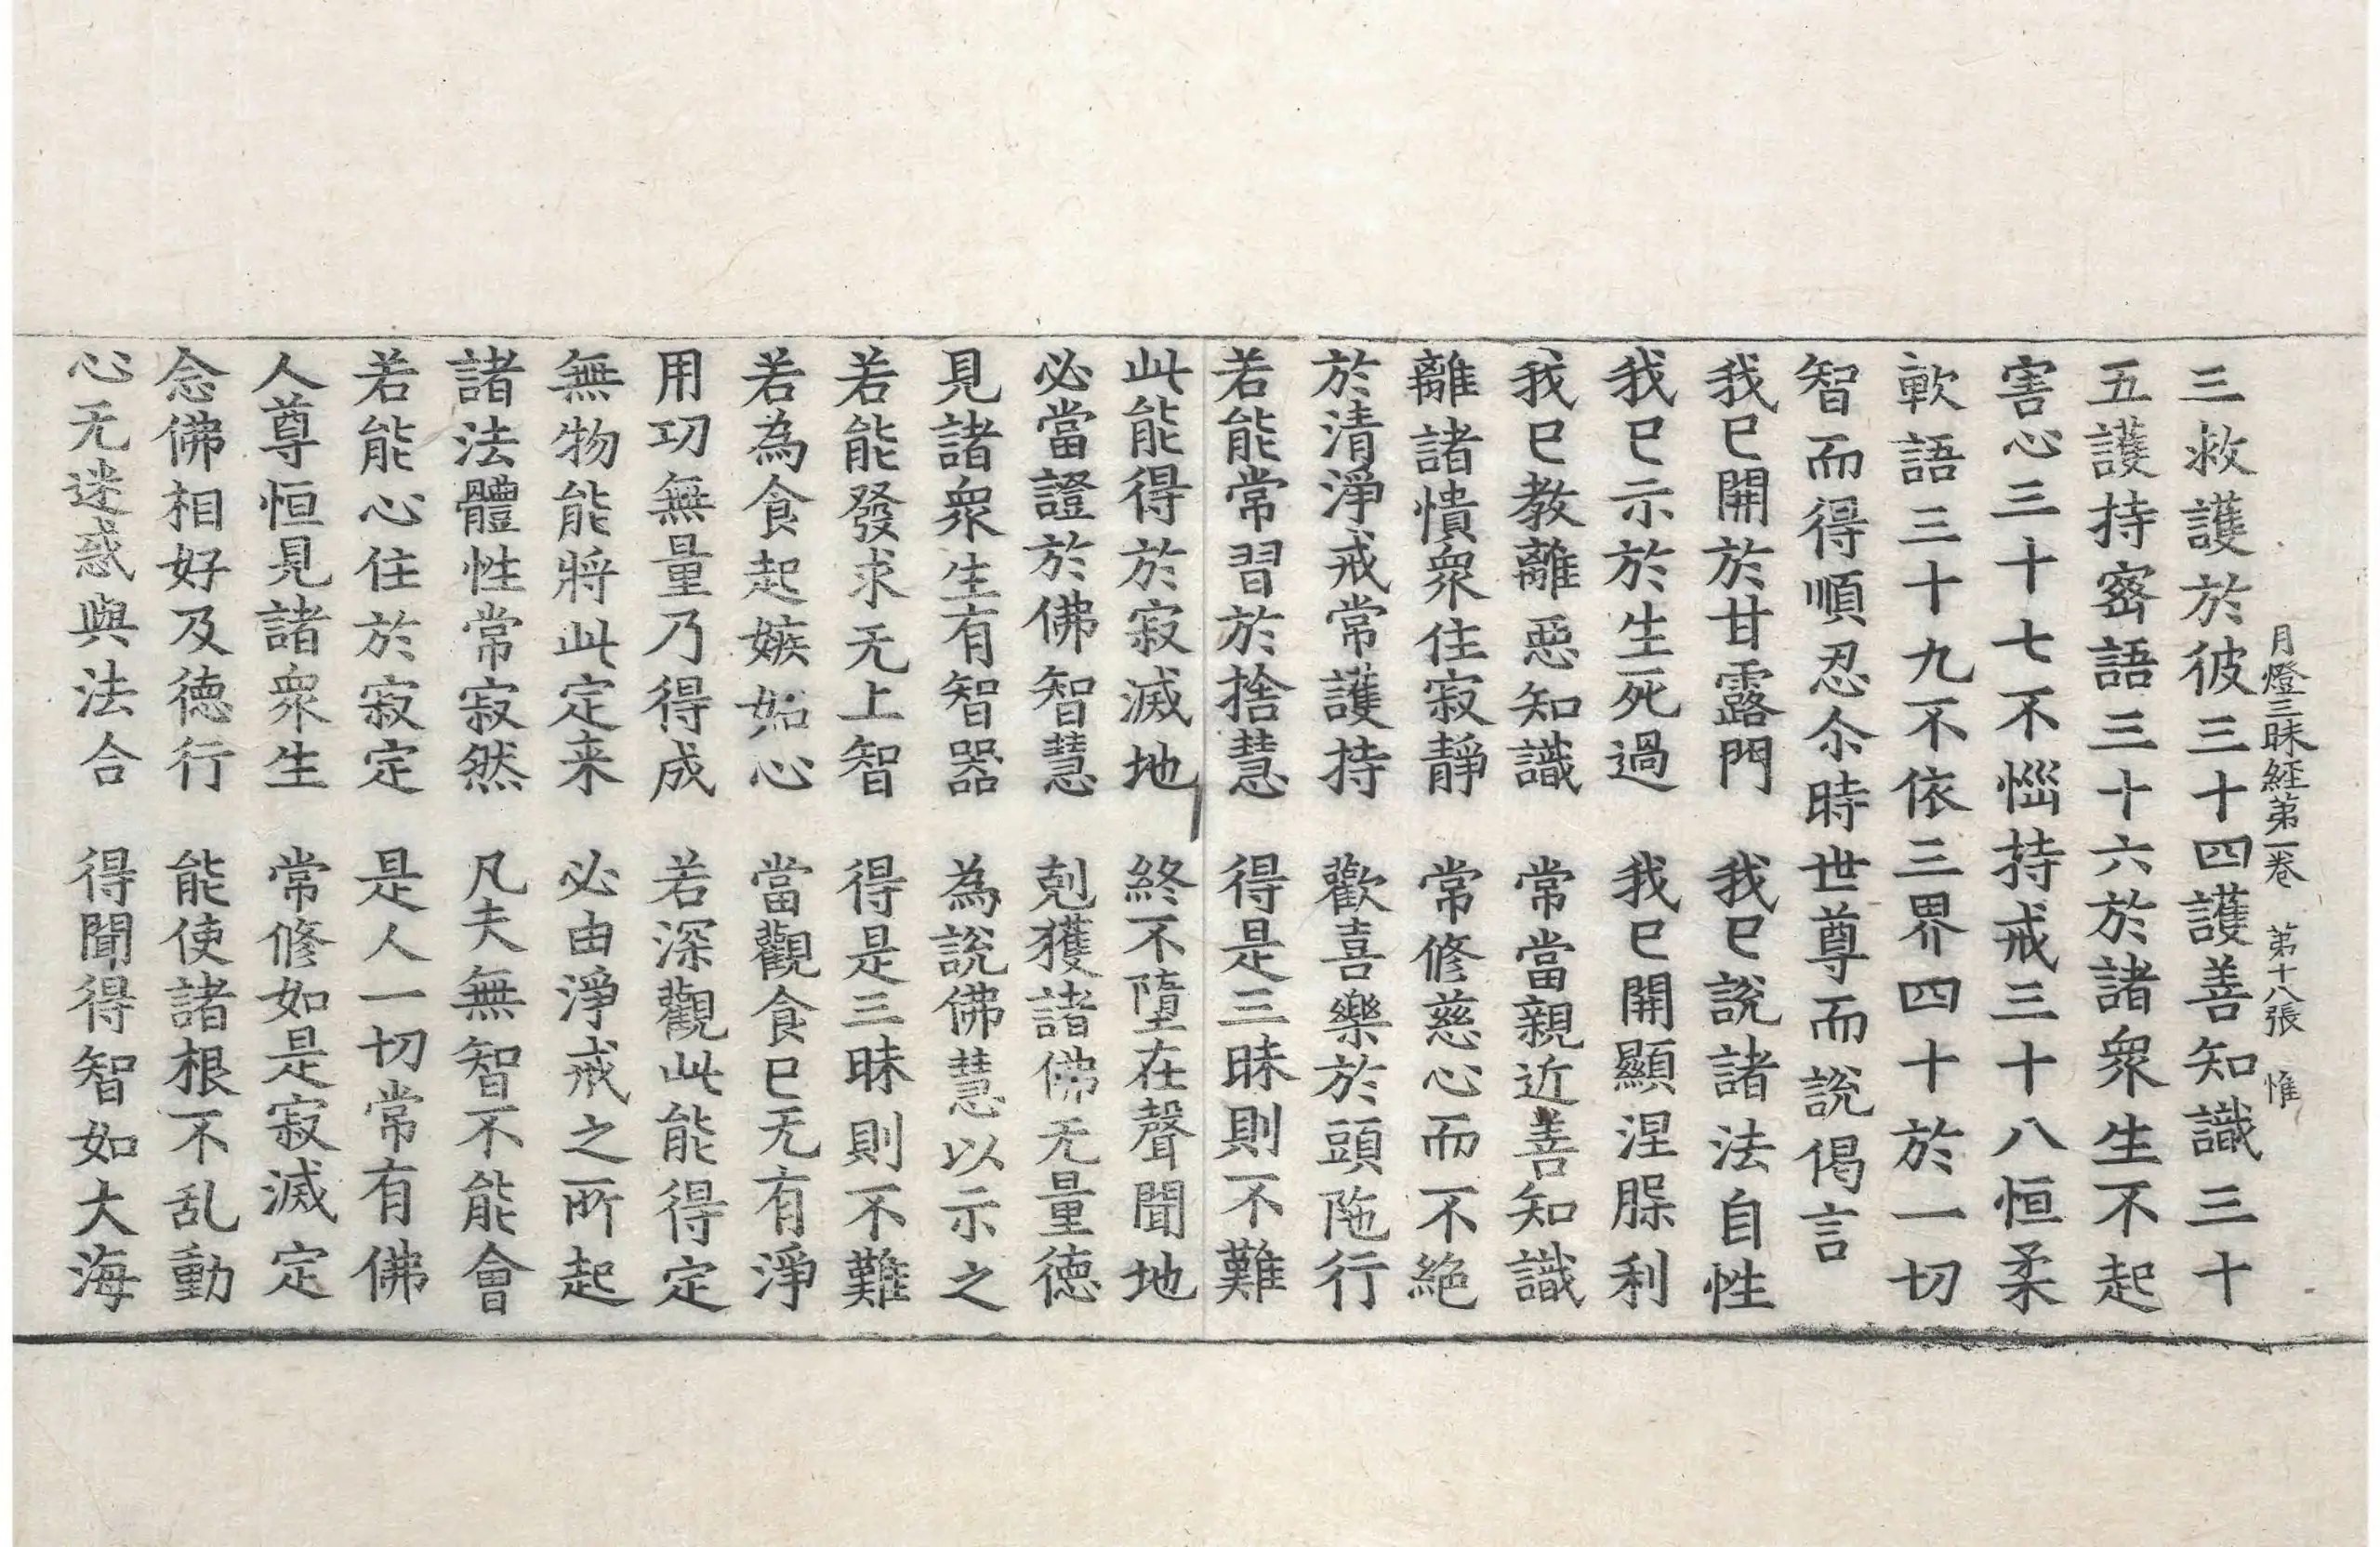 月燈三昧経苐一卷　苐十八張　惟
三救護於彼三十四護善知識三十
五護持密語三十六於諸衆生不起
害心三十七不惱持戒三十八恒柔
軟語三十九不依三界四十於一切
智而得順忍尒時世尊而說偈言
我已開於甘露門　我已說諸法自性
我已示於生死過　我已開顯涅槃利
我已教離惡知識　常當親近善知識
離諸憒衆住寂靜　常修慈心而不絶
於清淨戒常護持　歡喜樂於頭陁行
若能常習於捨慧　得是三昧則不難
此能得於寂滅地　終不墮在聲聞地
必當證於佛智慧　剋獲諸佛无量德
見諸衆生有智器　為說佛慧以示之
若能發求无上智　得是三昧則不難
若為食起嫉妬心　當觀食已无有淨
用功無量乃得成　若深觀此能得定
無物能將此定来　必由淨戒之所起
諸法體性常寂然　凡夫無智不能會
若能心住於寂定　是人一切常有佛
人尊恒見諸衆生　常修如是寂滅定
念佛相好及德行　能使諸根不乱動
心无迷惑與法合　得聞得智如大海